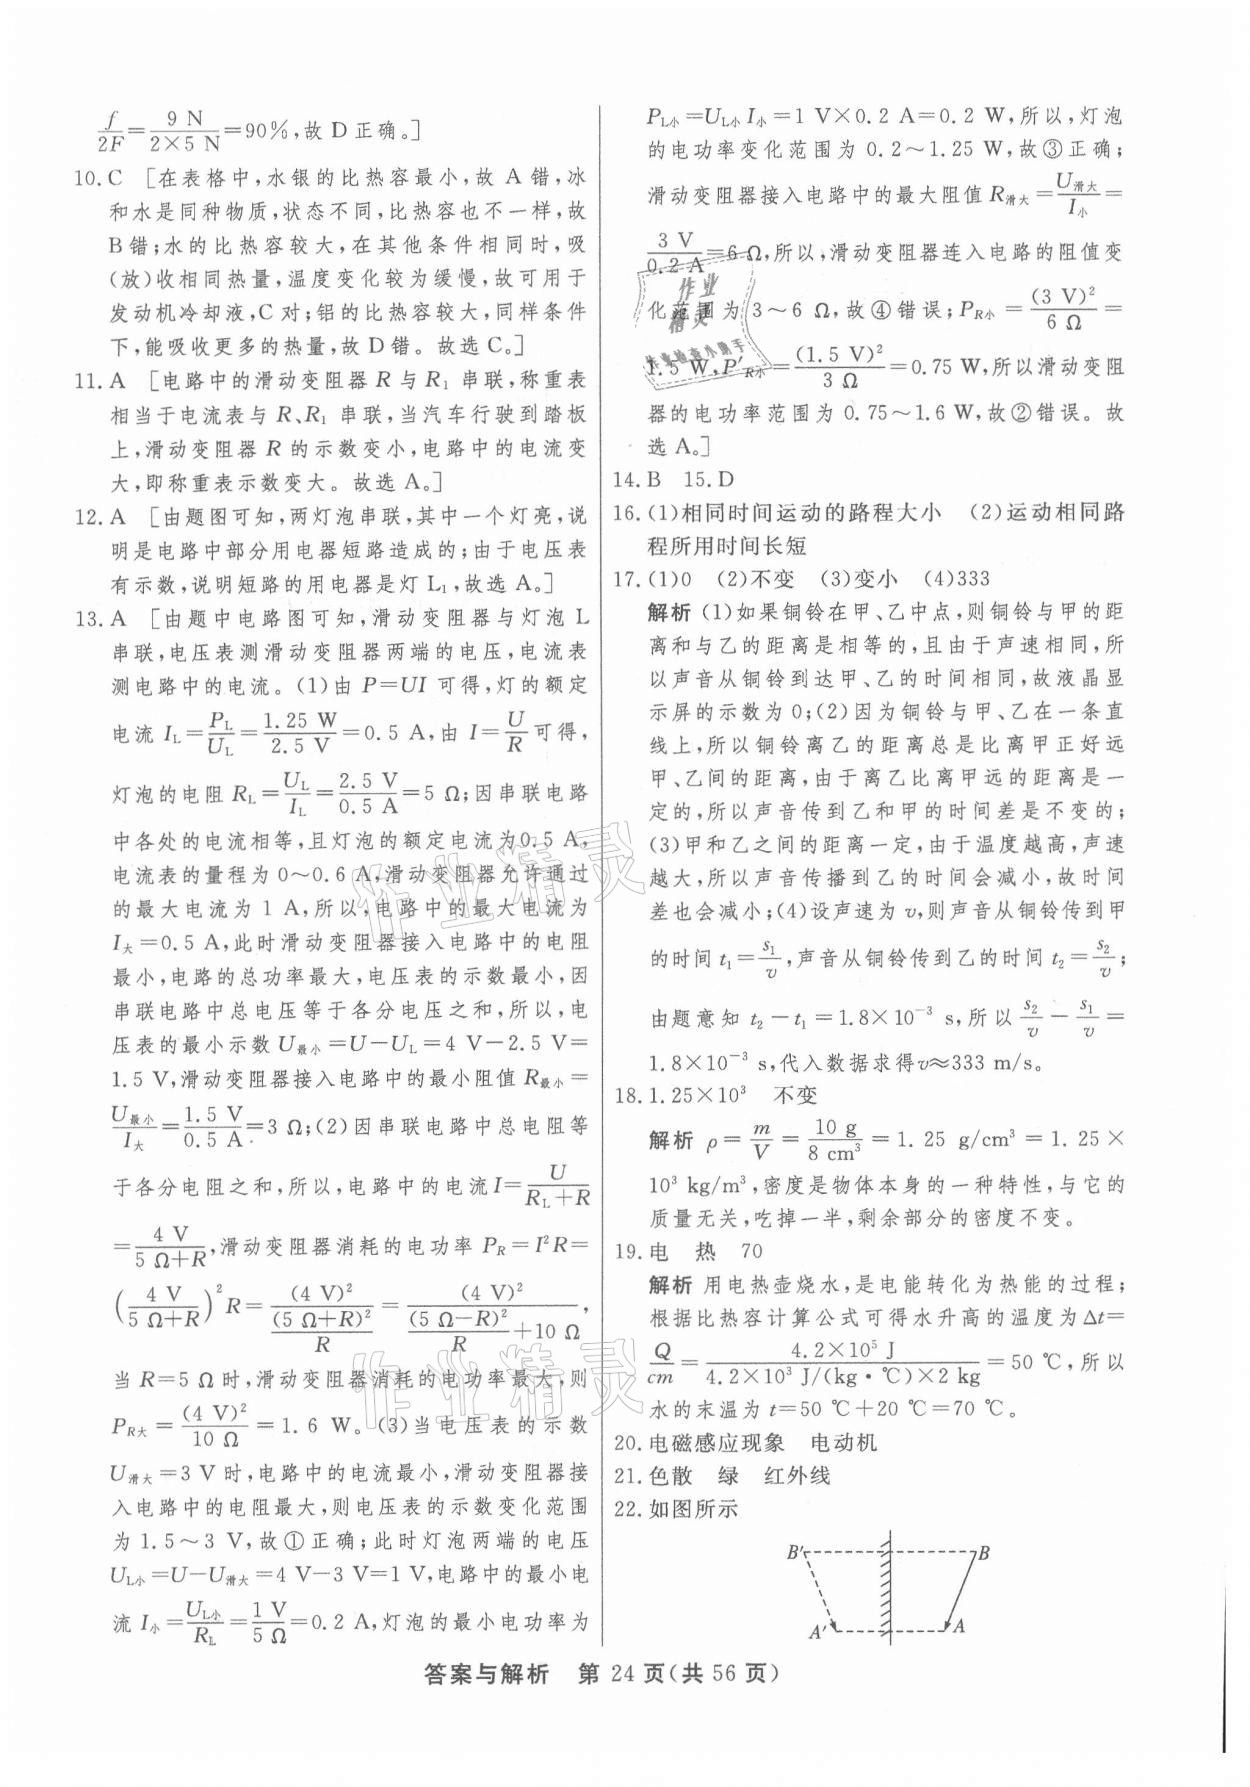 f/2F=9 N/(2×5 N)=90%,故 D 正确。]
10. C [在表格中,水银的比热容最小,故 A 错,冰
和水是同种物质,状态不同,比热容也不一样,故
B错;水的比热容较大,在其他条件相同时,吸
(放)收相同热量,温度变化较为缓慢,故可用于
发动机冷却液,C 对;铝的比热容较大,同样条件
下,能吸收更多的热量,故 D 错。故选 C。]
11. A [电路中的滑动变阻器 R 与 R₁ 串联,称重表
相当于电流表与 R、R₁ 串联,当汽车行驶到踏板
上,滑动变阻器 R 的示数变小,电路中的电流变
大,即称重表示数变大。故选 A。]
12. A [由题图可知,两灯泡串联,其中一个灯亮,说
明是电路中部分用电器短路造成的;由于电压表
有示数,说明短路的用电器是灯 L₁,故选 A。]
13. A [由题中电路图可知,滑动变阻器与灯泡 L
串联,电压表测滑动变阻器两端的电压,电流表
测电路中的电流。(1)由 P=UI 可得,灯的额定
电流 I_L=P_L/U_L=1.25 W/2.5 V=0.5 A,由 I=U/R 可得,
灯泡的电阻 R_L=U_L/I_L=2.5 V/0.5 A=5 Ω;因串联电路
中各处的电流相等,且灯泡的额定电流为0.5 A,
电流表的量程为 0~0.6 A,滑动变阻器允许通过
的最大电流为 1 A,所以,电路中的最大电流为
I大=0.5 A,此时滑动变阻器接入电路中的电阻
最小,电路的总功率最大,电压表的示数最小,因
串联电路中总电压等于各分电压之和,所以,电
压表的最小示数 U最小=U-U_L=4 V-2.5 V=
1.5 V,滑动变阻器接入电路中的最小阻值 R最小=
U最小/I大=1.5 V/0.5 A=3 Ω;(2)因串联电路中总电阻等
于各分电阻之和,所以,电路中的电流 I=U/(R_L+R)
=4 V/(5 Ω+R),滑动变阻器消耗的电功率 P_R=I²R=
(4 V/(5 Ω+R))²R=(4 V)²/((5 Ω+R)²/R)=(4 V)²/((5 Ω-R)²/R+10 Ω),
当 R=5 Ω 时,滑动变阻器消耗的电功率最大,则
P_R大=(4 V)²/10 Ω=1.6 W。(3)当电压表的示数
U滑大=3 V 时,电路中的电流最小,滑动变阻器接
入电路中的电阻最大,则电压表的示数变化范围
为 1.5~3 V,故①正确;此时灯泡两端的电压
U_L小=U-U滑大=4 V-3 V=1 V,电路中的最小电
流 I小=U_L小/R_L=1 V/5 Ω=0.2 A,灯泡的最小电功率为
P_L小=U_L小 I小=1 V×0.2 A=0.2 W,所以,灯泡
的电功率变化范围为 0.2~1.25 W,故③正确;
滑动变阻器接入电路中的最大阻值 R滑大=U滑大/I小=
3 V/0.2 A=6 Ω,所以,滑动变阻器连入电路的阻值变
化范围为 3~6 Ω,故④错误;P_R小=(3 V)²/6 Ω=
1.5 W,P′_R小=(1.5 V)²/3 Ω=0.75 W,所以滑动变阻
器的电功率范围为 0.75~1.6 W,故②错误。故
选 A。]
14. B 15. D
16. (1)相同时间运动的路程大小 (2)运动相同路
程所用时间长短
17. (1)0 (2)不变 (3)变小 (4)333
解析 (1)如果铜铃在甲、乙中点,则铜铃与甲的距
离和与乙的距离是相等的,且由于声速相同,所
以声音从铜铃到达甲、乙的时间相同,故液晶显
示屏的示数为 0;(2)因为铜铃与甲、乙在一条直
线上,所以铜铃离乙的距离总是比离甲正好远
甲、乙间的距离,由于离乙比离甲远的距离是一
定的,所以声音传到乙和甲的时间差是不变的;
(3)甲和乙之间的距离一定,由于温度越高,声速
越大,所以声音传播到乙的时间会减小,故时间
差也会减小;(4)设声速为 v,则声音从铜铃传到甲
的时间 t₁=s₁/v,声音从铜铃传到乙的时间 t₂=s₂/v;
由题意知 t₂-t₁=1.8×10⁻³ s,所以 s₂/v-s₁/v=
1.8×10⁻³ s,代入数据求得v≈333 m/s。
18. 1.25×10³ 不变
解析 ρ=m/V=10 g/8 cm³=1.25 g/cm³=1.25×
10³ kg/m³,密度是物体本身的一种特性,与它的
质量无关,吃掉一半,剩余部分的密度不变。
19. 电 热 70
解析 用电热壶烧水,是电能转化为热能的过程;
根据比热容计算公式可得水升高的温度为Δt=
Q/cm=4.2×10⁵ J/(4.2×10³ J/(kg·℃)×2 kg)=50 ℃,所以
水的末温为 t=50 ℃+20 ℃=70 ℃。
20. 电磁感应现象 电动机
21. 色散 绿 红外线
22. 如图所示
B′ B
A′ A
答案与解析 第 24 页(共 56 页)
作业精灵
作业精灵
作业
精灵
作业检查小助手